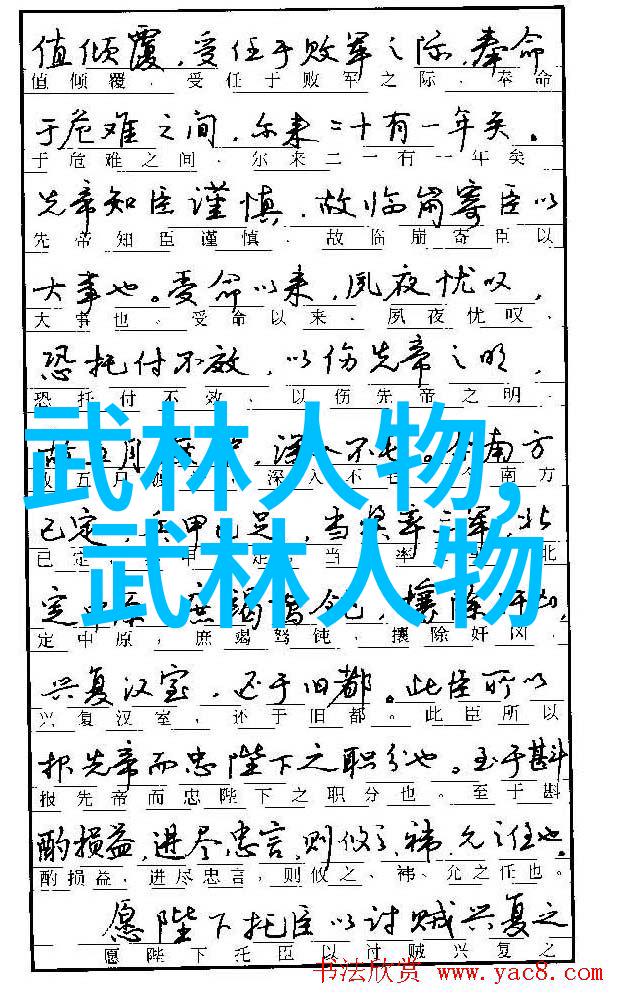 值倾覆，受任于败军之际，奉命
值倾覆，受任于败军之际，奉命
于危难之间，尔来二十有一年矣。
于危难之间，尔来二一有一年矣
先帝知臣谨慎，故临崩寄臣以
先帝知臣谨慎，故临崩寄臣以
大事也。受命以来，夙夜忧叹，
大事也。受命以来，夙夜忧叹，
恐托付不效，以伤先帝之明，
恐托付不效，以伤先帝之明，
武林人物,
故五月 深入不毛。今南方
故五月 深入不毛 今南方
已定，兵甲已足，当奖率三军，北
已定 甲 足 当 率 北
武林人物
定中原，庶竭驽钝，攘除奸凶，
定中原，庶竭驽钝，攘除奸凶，
兴复汉室，还于旧都。此臣所以
兴复汉室，还于旧都。此臣所以
报先帝而忠陛下之职分也。至于斟
报先帝而忠陛下之职分也。至于斟
酌损益，进尽忠言，则攸之、祎、允之任也。
酌损益，进尽忠言，则攸之、祎、允之任也。
愿陛下托臣以讨贼兴复之
愿陛下托臣以讨贼兴复之
书法欣赏 www.yac8.com